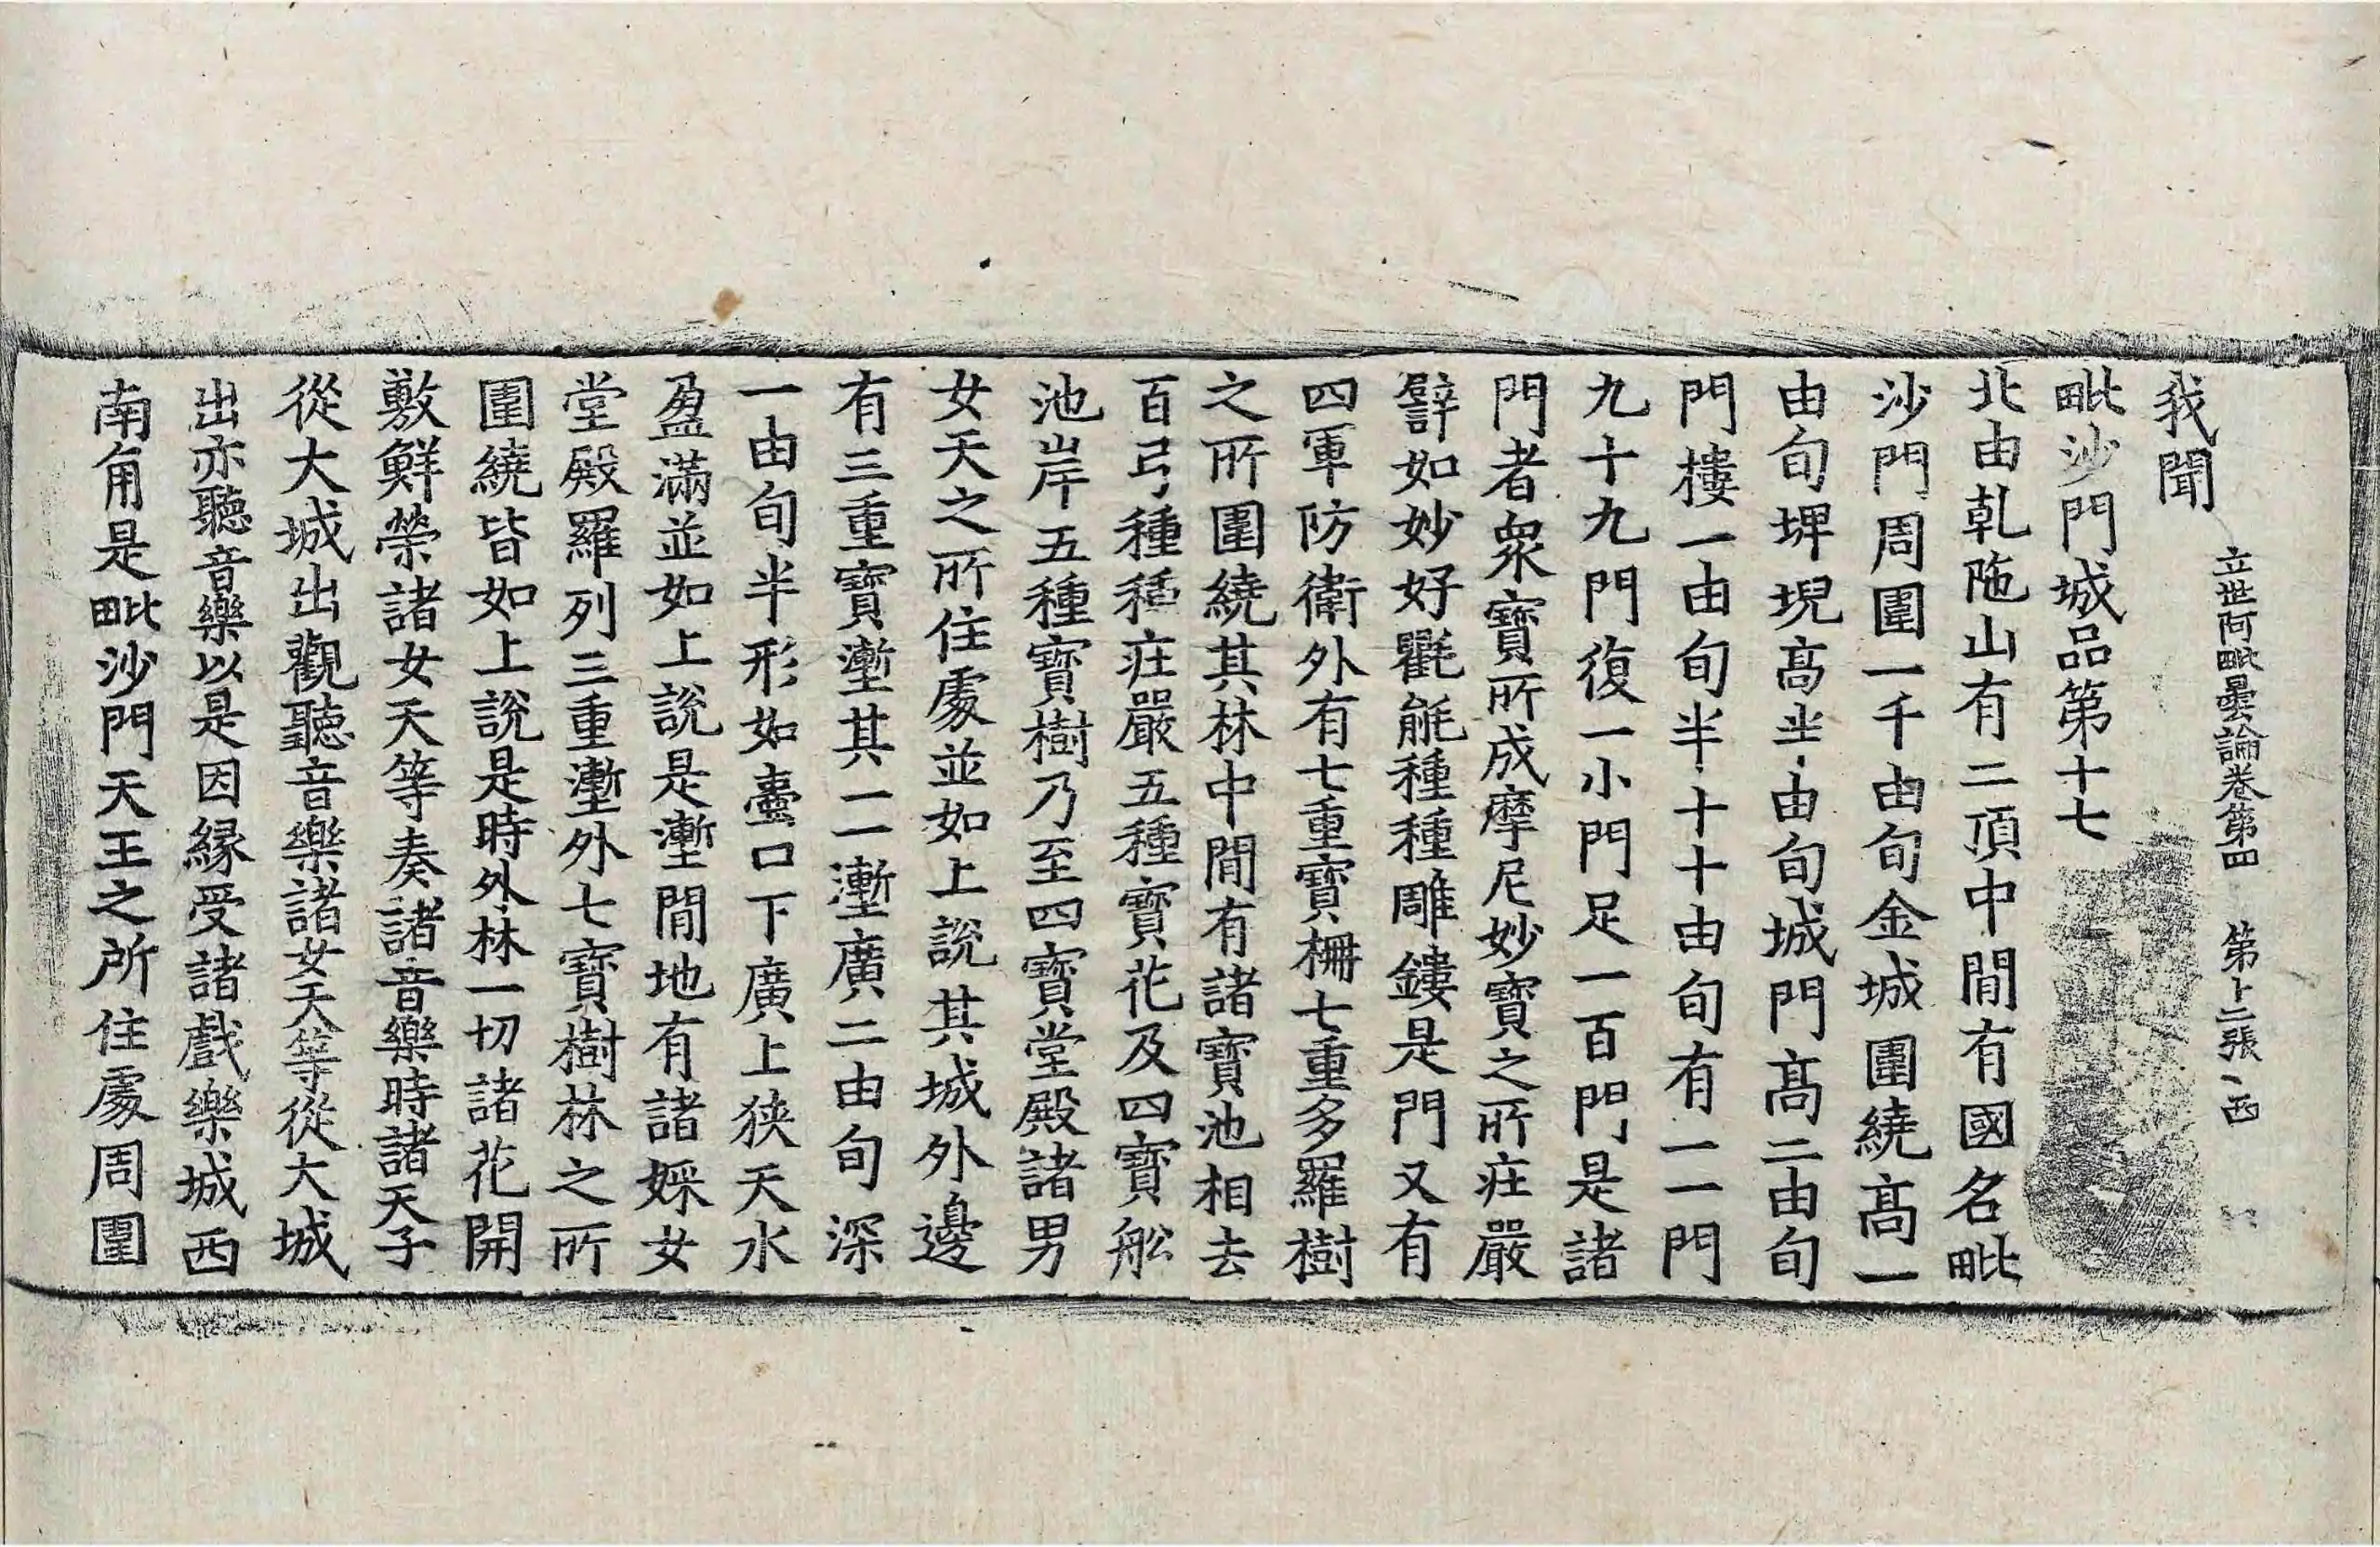 立世阿毗曇論卷第四 第十二張 西
我聞
毗沙門城品第十七
北由乹陁山有二頂中間有國名毗
沙門周圍一千由旬金城圍繞髙一
由旬埤堄髙半由旬城門髙二由旬
門樓一由旬半十十由旬有一一門
九十九門復一小門足一百門是諸
門者衆寶所成摩尼妙寶之所莊嚴
譬如妙好氍毹種種雕鏤是門又有
四軍防衛外有七重寶柵七重多羅樹
之所圍繞其林中間有諸寶池相去
百弓種種莊嚴五種寶花及四寶舩
池岸五種寶樹乃至四寶堂殿諸男
女天之所住處並如上說其城外邊
有三重寶壍其一一壍廣二由旬深
一由旬半形如壷口下廣上狹天水
盈滿並如上說是壍間地有諸婇女
堂殿羅列三重壍外七寶樹林之所
圍繞皆如上說是時外林一切諸花開
敷鮮榮諸女天等奏諸音樂時諸天子
從大城出觀聽音樂諸女天等從大城
出亦聽音樂以是因緣受諸戲樂城西
南角是毗沙門天王之所住處周圍